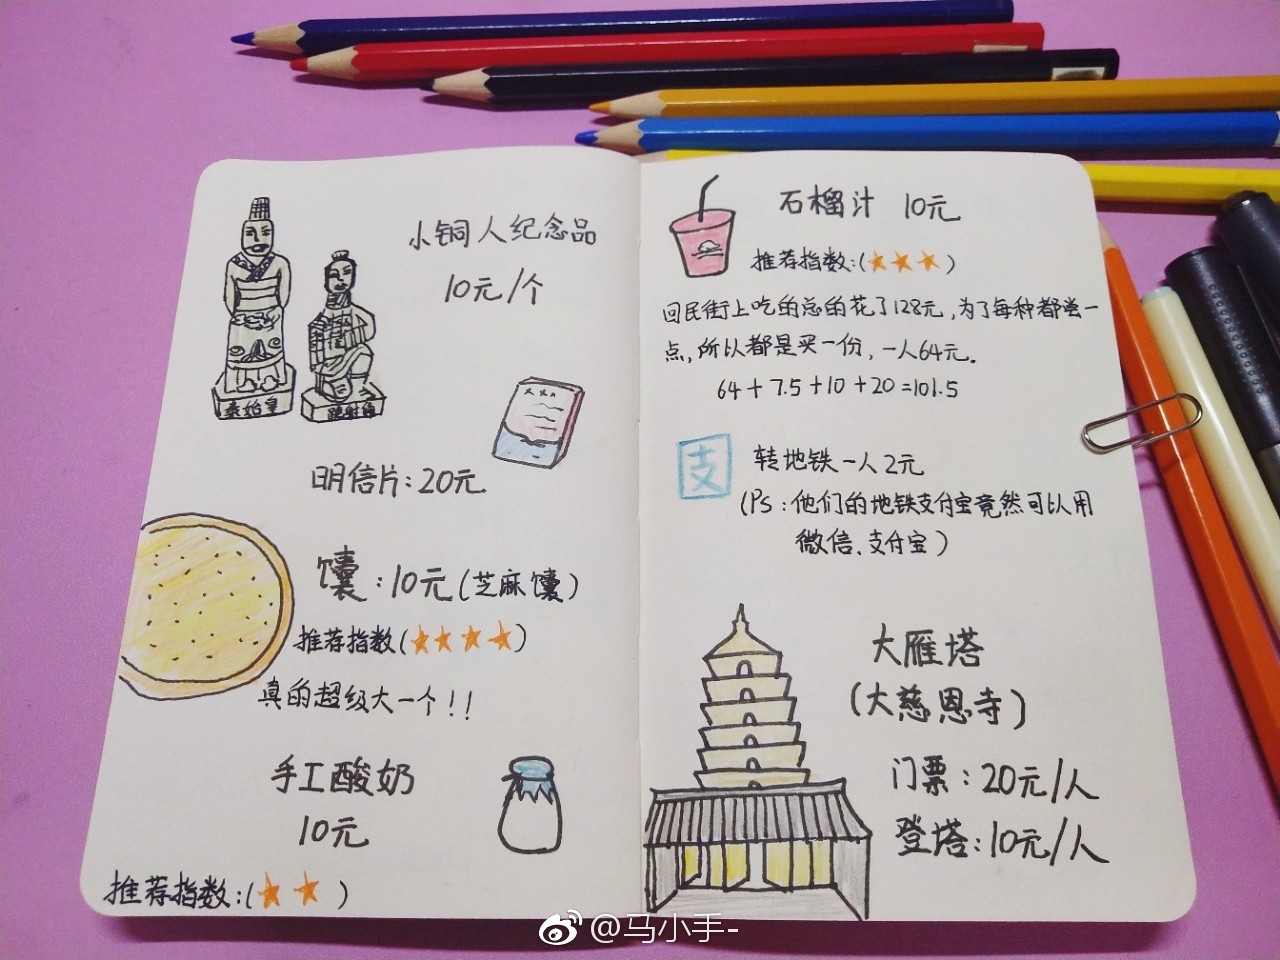 小铜人纪念品
10元/个
秦始皇
跪射俑
明信片:20元
馕:10元(芝麻馕)
推荐指数(★★★★)
真的超级大一个!!
手工酸奶
10元
推荐指数:(★★)
石榴汁 10元
推荐指数:(★★★)
回民街上吃的总的花了128元,为了每种都尝一
点,所以都是买一份,一人64元.
64+7.5+10+20=101.5
支
转地铁一人2元
(Ps:他们的地铁支付宝竟然可以用
微信、支付宝)
大雁塔
(大慈恩寺)
门票:20元/人
登塔:10元/人
@马小手-